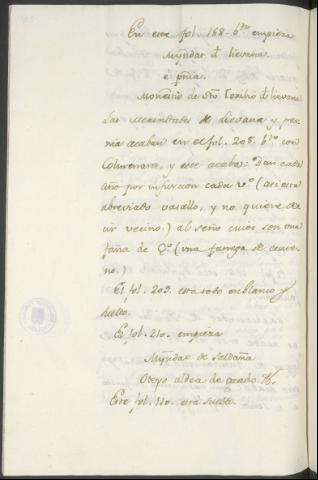 En este fol. 188. bto empieza
Myndat de lievana
é prnia.
Monesterio de Sto Toribio de lievana
Las Merindades de Lievana y per
nia acaban en el fol. 208. bto con
Colmenares, y este acaba: Dan cada
año por infurcion cada vº (asi esta
abreviado vasallo, y no quiere de
cir vecino.) al señor cuios son una
faña de Cº (una fanega de cente
no.)
El fol. 209. esta todo en blanco y
suelto.
El fol. 210. empieza
Myndat de Saldaña
Oteyo aldea de
Este fol. 110. está suelto.